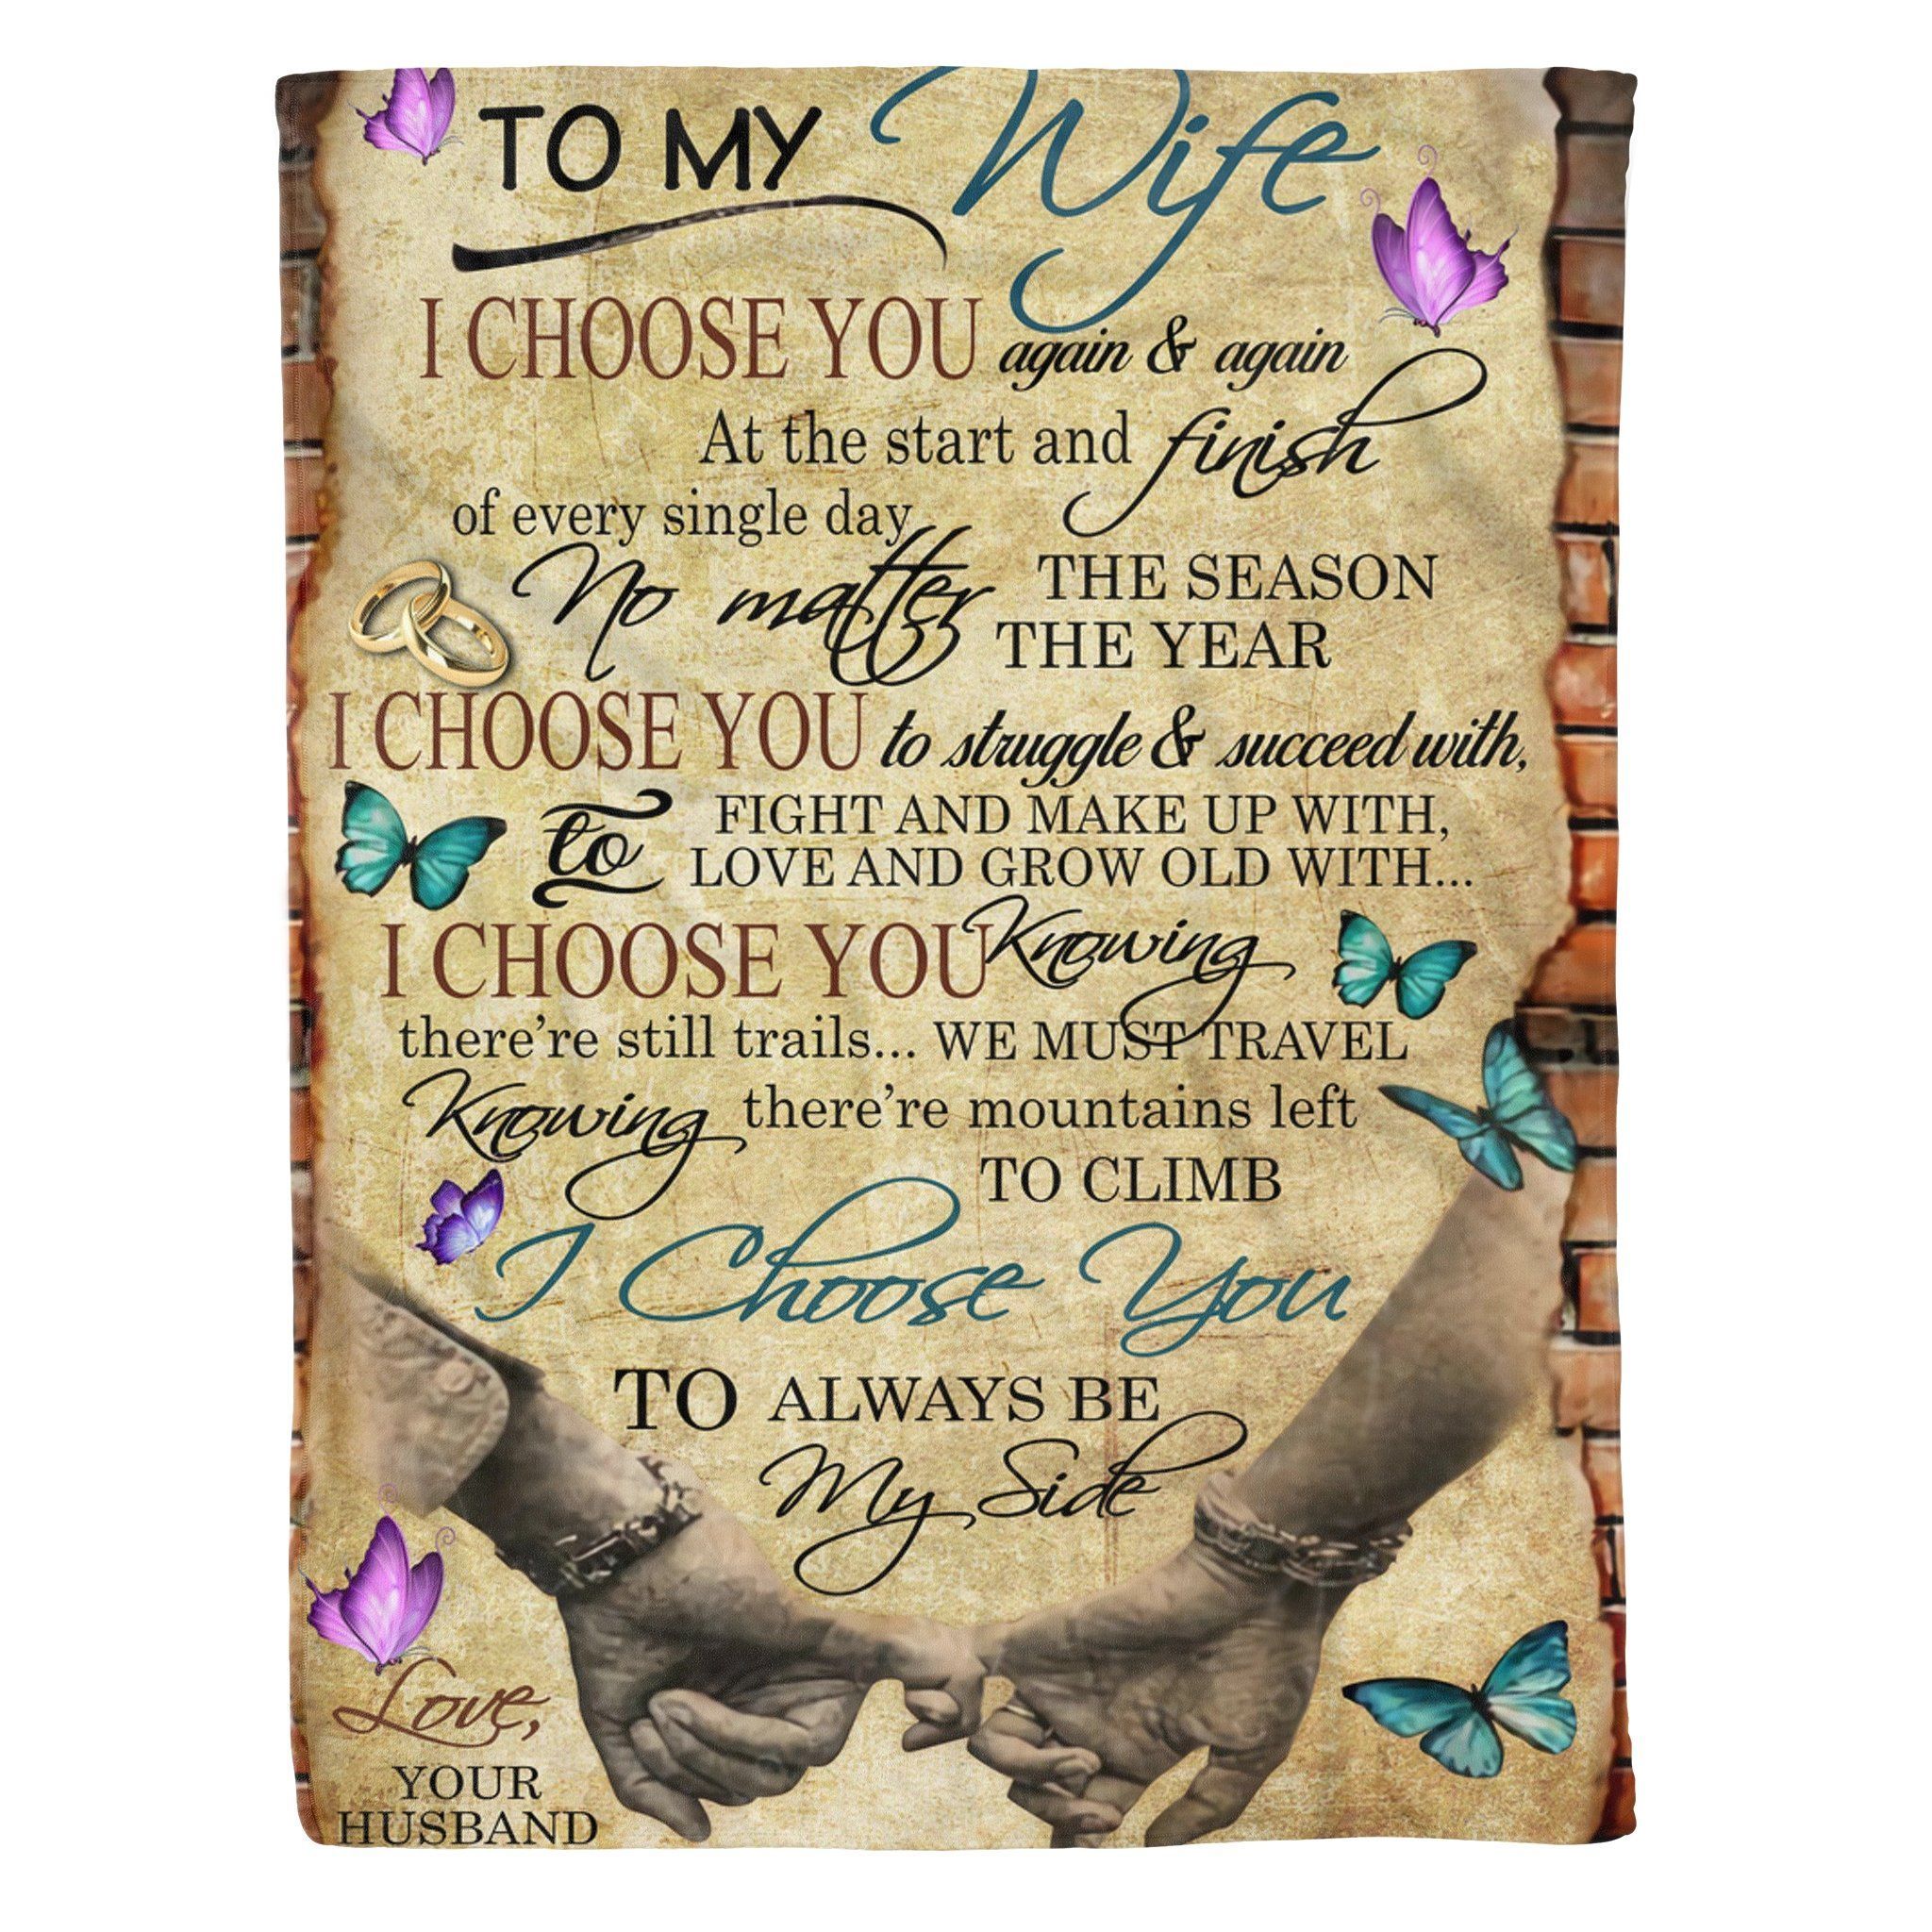 TO MY Wife
I CHOOSE YOU again & again
At the start and finish
of every single day
No matter THE SEASON
THE YEAR
I CHOOSE YOU to struggle & succeed with,
to FIGHT AND MAKE UP WITH,
LOVE AND GROW OLD WITH...
I CHOOSE YOU Knowing
there're still trails... WE MUST TRAVEL
Knowing there're mountains left
TO CLIMB
I Choose You
TO ALWAYS BE
My Side
Love,
YOUR
HUSBAND